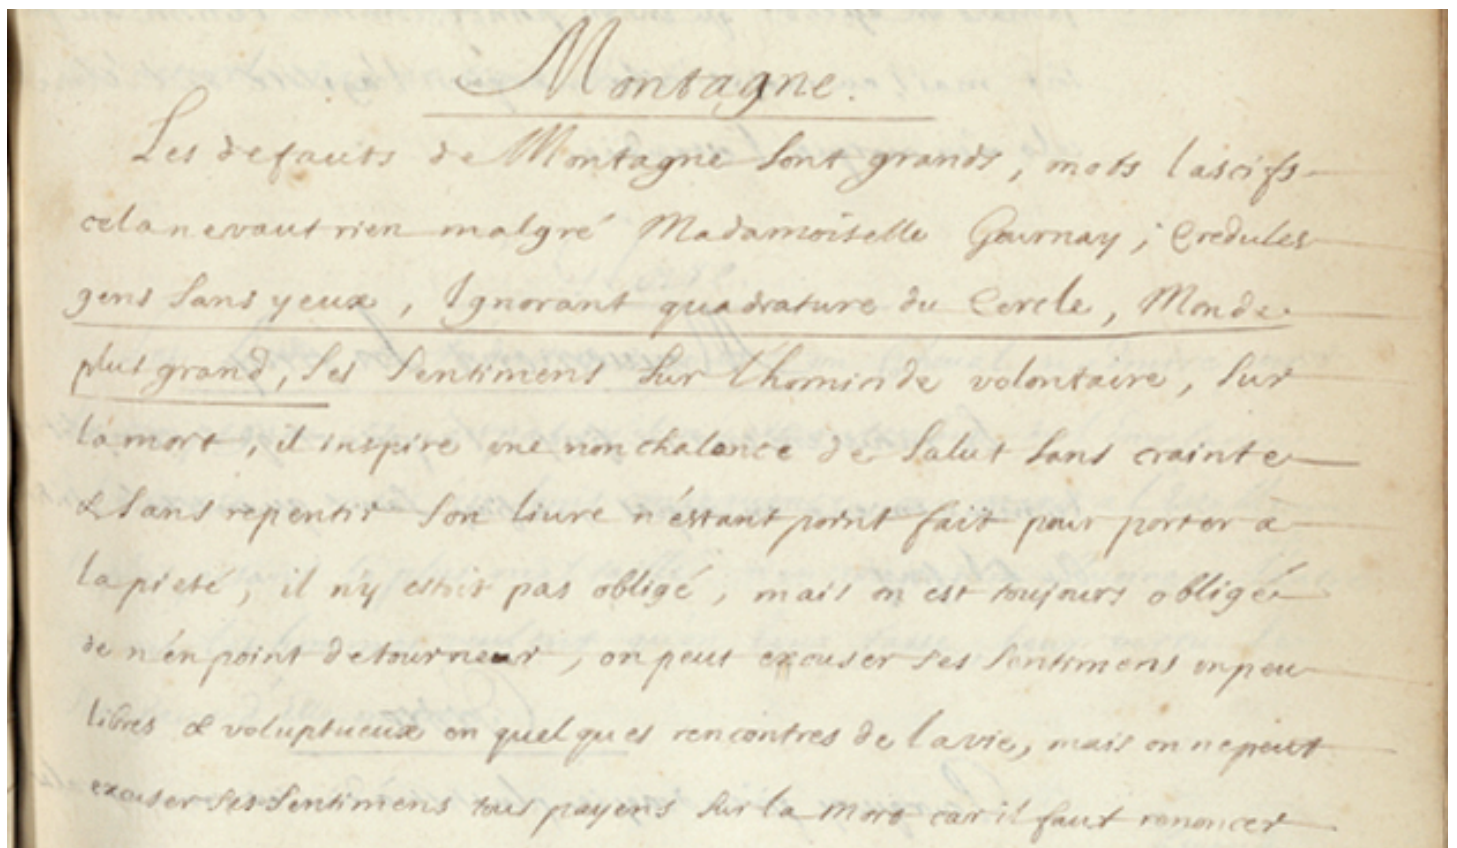 Montagne.
Les defauts de Montagne sont grands, mots lascifs
cela ne vaut rien malgré Madamoiselle Gournay; Credules
gens sans yeux, Ignorant quadrature du Cercle, Monde
plus grand, ses sentimens sur l'homicide volontaire, sur
la mort, il inspire une nonchalence de salut sans crainte
& sans repentir son livre n'estant point fait pour porter a
la pieté, il n'y estoit pas obligé, mais on est toujours obligé
de n'en point detourneur, on peut excuser ses sentimens un peu
libres & voluptueux en quelques rencontres de la vie, mais on ne peut
excuser ses sentimens tous payens sur la mort car il faut renoncer